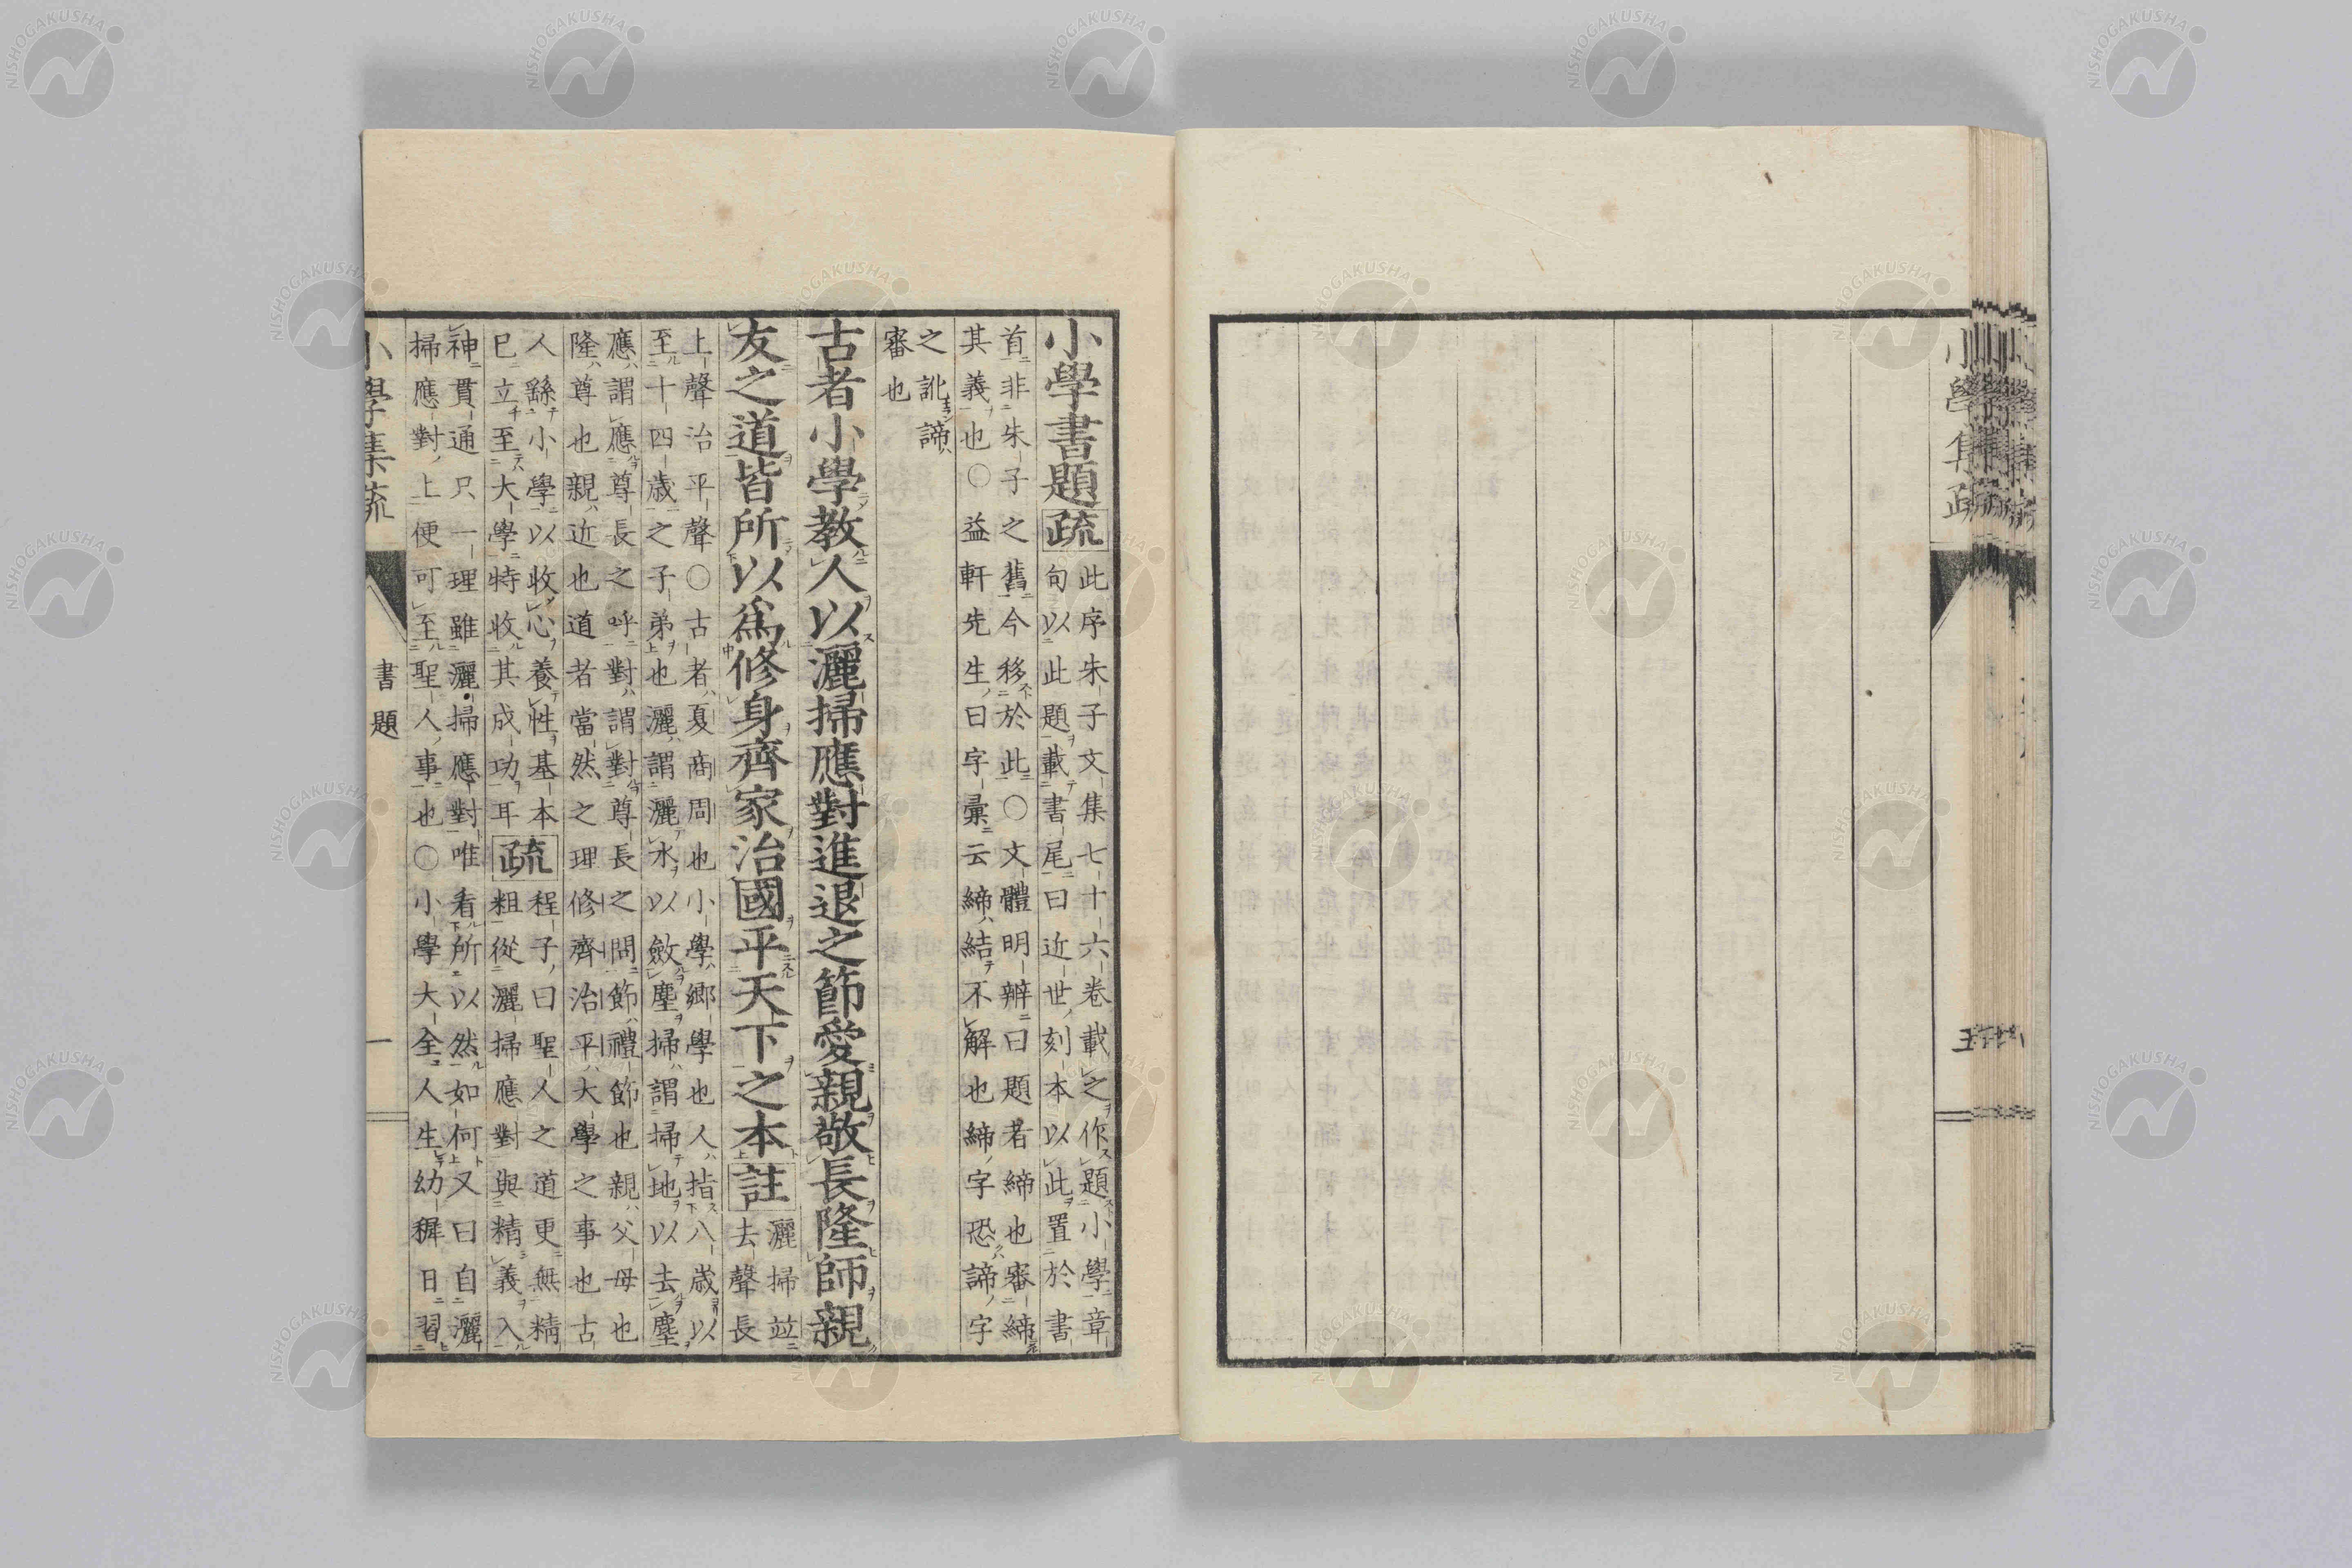 小學書題疏
此序朱子文集七十六卷載之作題小學章
句以此題載書尾曰近世刻本以此置於書
首非朱子之舊今移於此〇文體明辨曰題者締也審締
其義也〇益軒先生曰字彙云締結不解也締字恐諦字
之訛諦
審也
古者小學教人以灑掃應對進退之節愛親敬長隆師親
友之道皆所以爲修身齊家治國平天下之本註
灑掃竝
去聲長
上聲治平聲〇古者夏商周也小學鄉學也人指八歲以
至十四歲之子弟也灑謂灑水以斂塵掃謂掃地以去塵
應謂應尊長之呼對謂對尊長之問節禮節也親父母也
隆尊也親近也道者當然之理修齊治平大學之事也古
人繇小學以收心養性基本
已立至大學特收其成功耳
疏
程子曰聖人之道更無精
粗從灑掃應對與精義入
神貫通只一理雖灑掃應對唯看所以然如何又曰自灑
掃應對上便可至聖人事也〇小學大全人生幼穉日習
小學集疏
書題
一
小學集疏
NISHOGAKUSHA